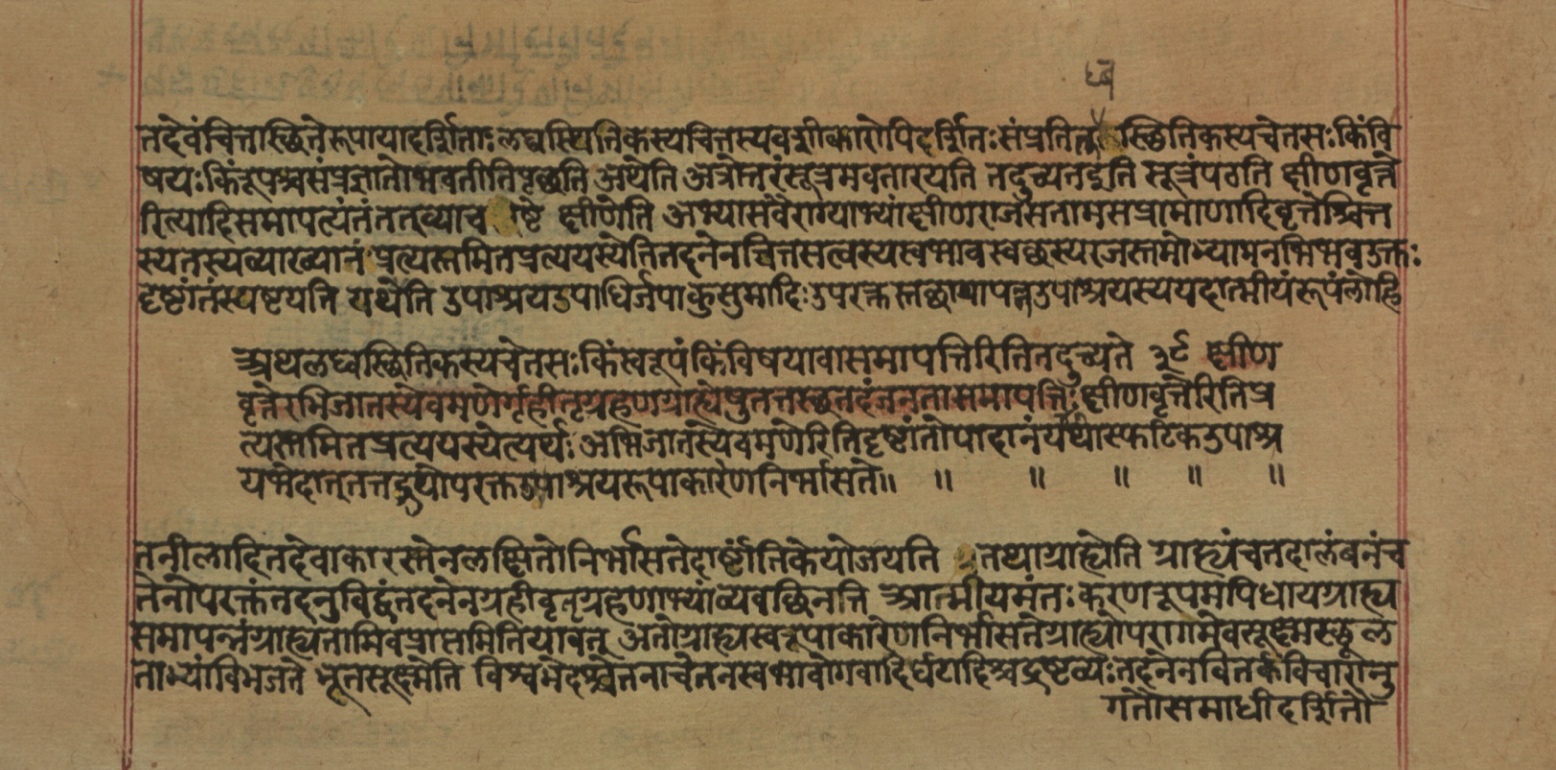 ब्ध
तदेवंचित्तस्थितेरूपायादर्शिताःलब्धस्थितिकस्यचित्तस्यवशीकारोपिदर्शितःसंप्रतितुस्थितिकस्यचेतसःकिंवि
षयःकिंरूपश्चसंप्रज्ञातोभवतीतिपृच्छति अथेति अत्रोत्तरंसूत्रमवतारयति तदुच्यतइति सूत्रंपठति क्षीणवृत्ते
रित्यादिसमापत्यंतंतत्व्याचष्टे क्षीणेति अभ्यासवैराग्याभ्यांक्षीणराजसतामसप्रामाणादिवृत्तेश्चित्त
स्यतस्यव्याख्यानंप्रत्यस्तमितप्रत्ययस्येतितदनेनचित्तसत्वस्यस्वभावस्वच्छस्यरजस्तमोभ्यामनभिभवउक्तः
दृष्टांतंस्पष्टयति यथेति उपाश्रयउपाधिर्जपाकुसुमादिःउपरक्तस्तच्छायापन्नउपाश्रयस्ययदात्मीयंरूपंलोहि
अथलब्धस्थितिकस्यचेतसःकिंस्वरूपंकिंविषयावासमापत्तिरितितदुच्यते ३९ क्षीण
वृत्तेरभिजातस्येवमणेर्गृहीतृग्रहणग्राह्येषुतत्तस्छतदंजनतासमापत्तिःक्षीणवृत्तेरितिप्र
त्यस्तमितप्रत्ययस्येत्यर्थःअभिजातस्येवमणेरितिदृष्टांतोपादानंयथास्फटिकउपाश्र
यभेदात्तत्तद्रूपोपरक्तउपाश्रयरूपाकारेणनिर्भासते॥ ॥ ॥ ॥ ॥ ॥
तनीलादितदेवाकारस्तेनलक्षितोनिर्भासतेदार्ष्टांतिकेयोजयति तथाग्राह्येति ग्राह्यंचतदालंबनंच
तेनोपरक्तंतदनुविद्धंतदनेनग्रहीवृतृग्रहणाभ्यांव्यवच्छिनत्ति आत्मीयमंतःकरणरूपमपिधायग्राह्य
समापन्नंग्राह्यतामिवप्राप्तमितियावत् अतोग्राह्यस्वरूपाकारेणनिर्भासतेग्राह्योपरागमेवसूक्ष्मस्छूल
ताभ्यांविभजते भूतसूक्ष्मेति विश्वभेदश्चेतनाचेतनस्वभावोगवादिर्घटादिश्चद्रष्टव्यःतदनेनवितर्कविचारानु
गतौसमाधीदर्शितौ